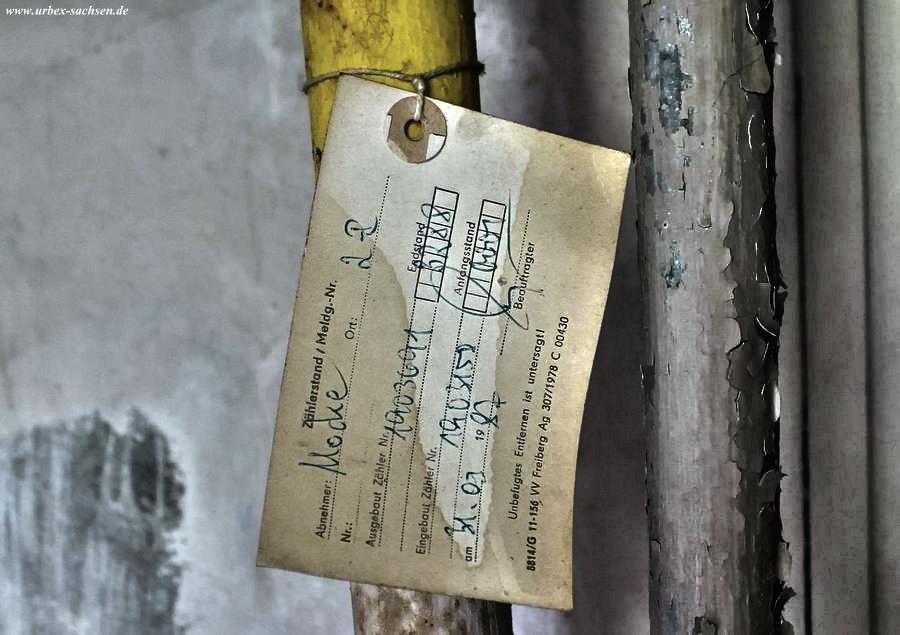 www.urbex-sachsen.de
Zählerstand / Meldg.-Nr.
Abnehmer:
Nr.: Ort:
Ausgebaut Zähler Nr. 1903691 Endstand
Eingebaut Zähler Nr. 1903150 Anfangsstand
am 31.03 1987
Beauftragter
Unbefugtes Entfernen ist untersagt!
8814/G 11-156 VV Freiberg Ag 307/1978 C 00430